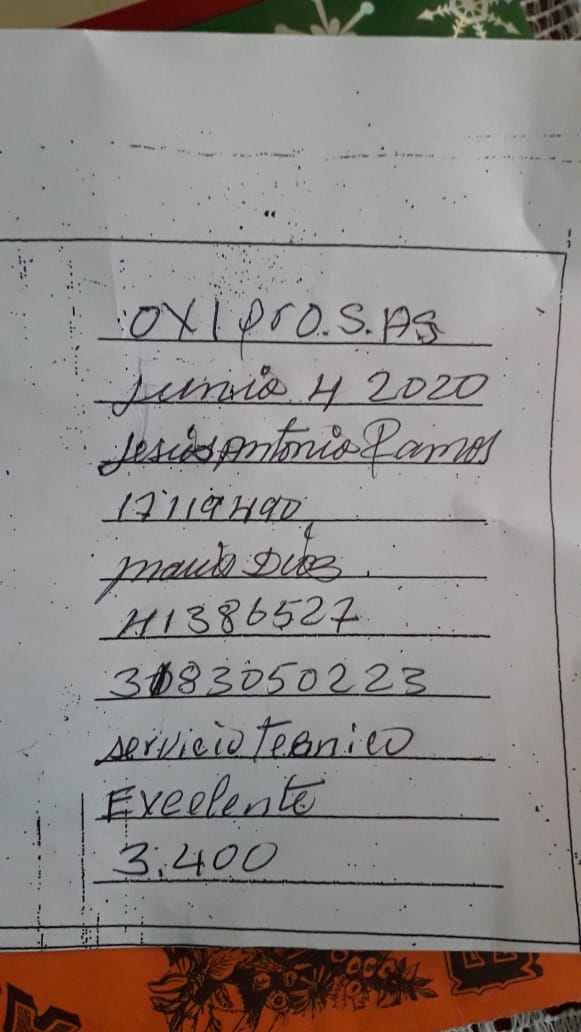 OXIPrO.S.AS
Junio 4 2020
Jesus Antonio Ramos
17119490
Maria Dias
41386527
3183050223
servicio Tecnico
Excelente
3.400